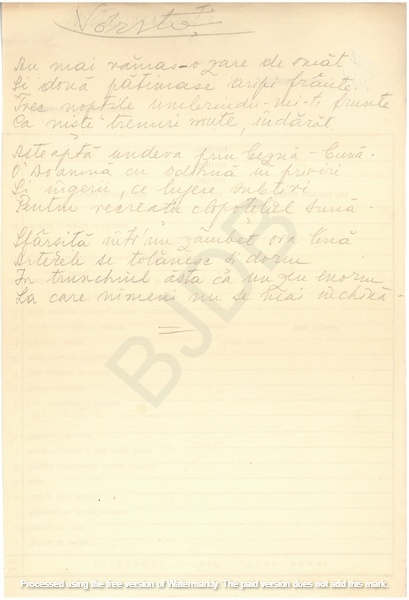 Vârste
Au mai rămas-o zare de omăt
Și două pătimașe aripi frânte
Trec nopțile umbrindu-mi-ți frunte
Ca niște trenuri mute, îndărăt
Așteaptă undeva prin beznă-bună-
O doamnă cu în priviri
Și îngerii, ce subțiri
Pentru recreație clopoțelul sună.
Sfârșită într'un zâmbet ora lină
Arterele se tolănesc și dorm
În trunchiul ăsta ca un zeu enorm
La care nimeni nu se mai închină-
BJDB
Processed using the free version of Watermarkly. The paid version does not add this mark.